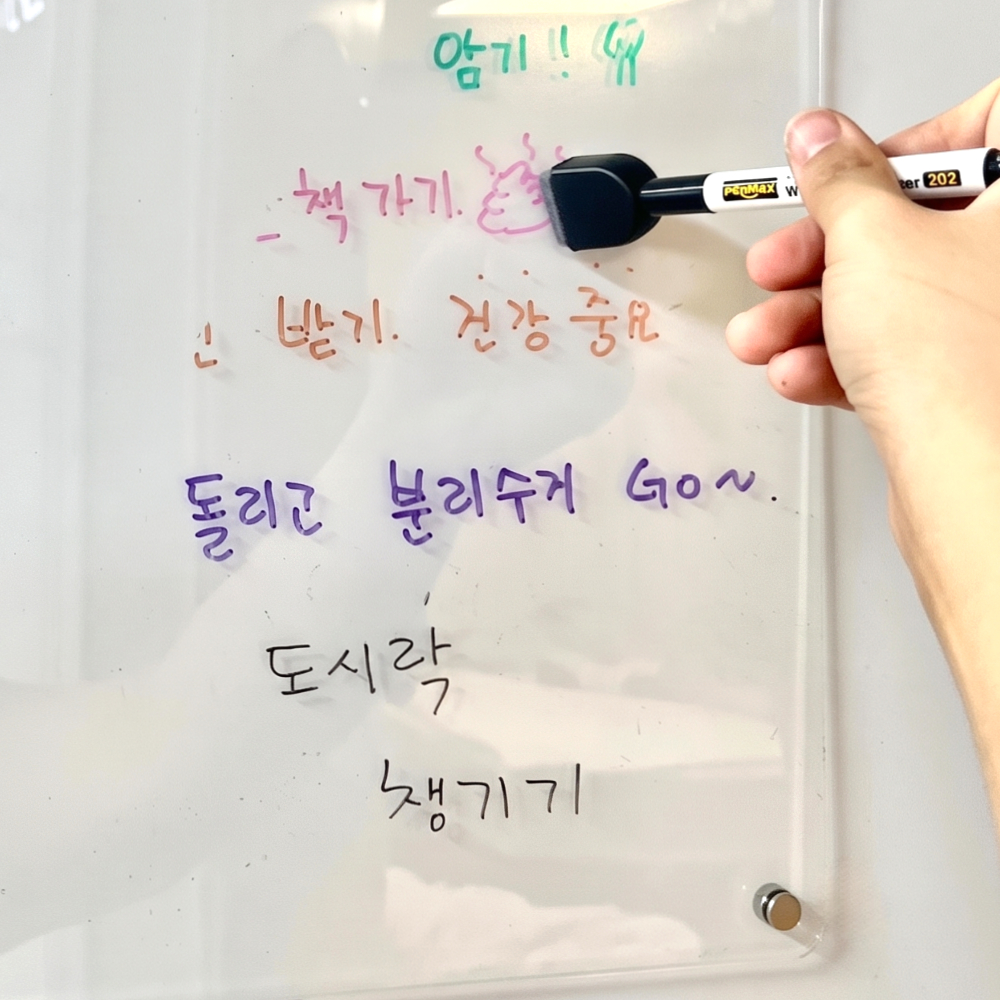 암기!!
책 가기.
받기. 건강 중요
돌리고 분리수거 GO~.
도시락
챙기기
PENMAX
202